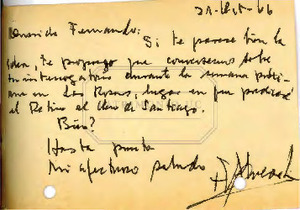 Querido Fernando:
Si te parece bien la
idea, te propongo que conversemos sobre
tu interrogatorio durante la semana próxi-
ma en Las Rosas, lugar en que predicaré
el Retiro al clero de Santiago.
Bien?
Hasta pronto
Mi afectuoso saludo